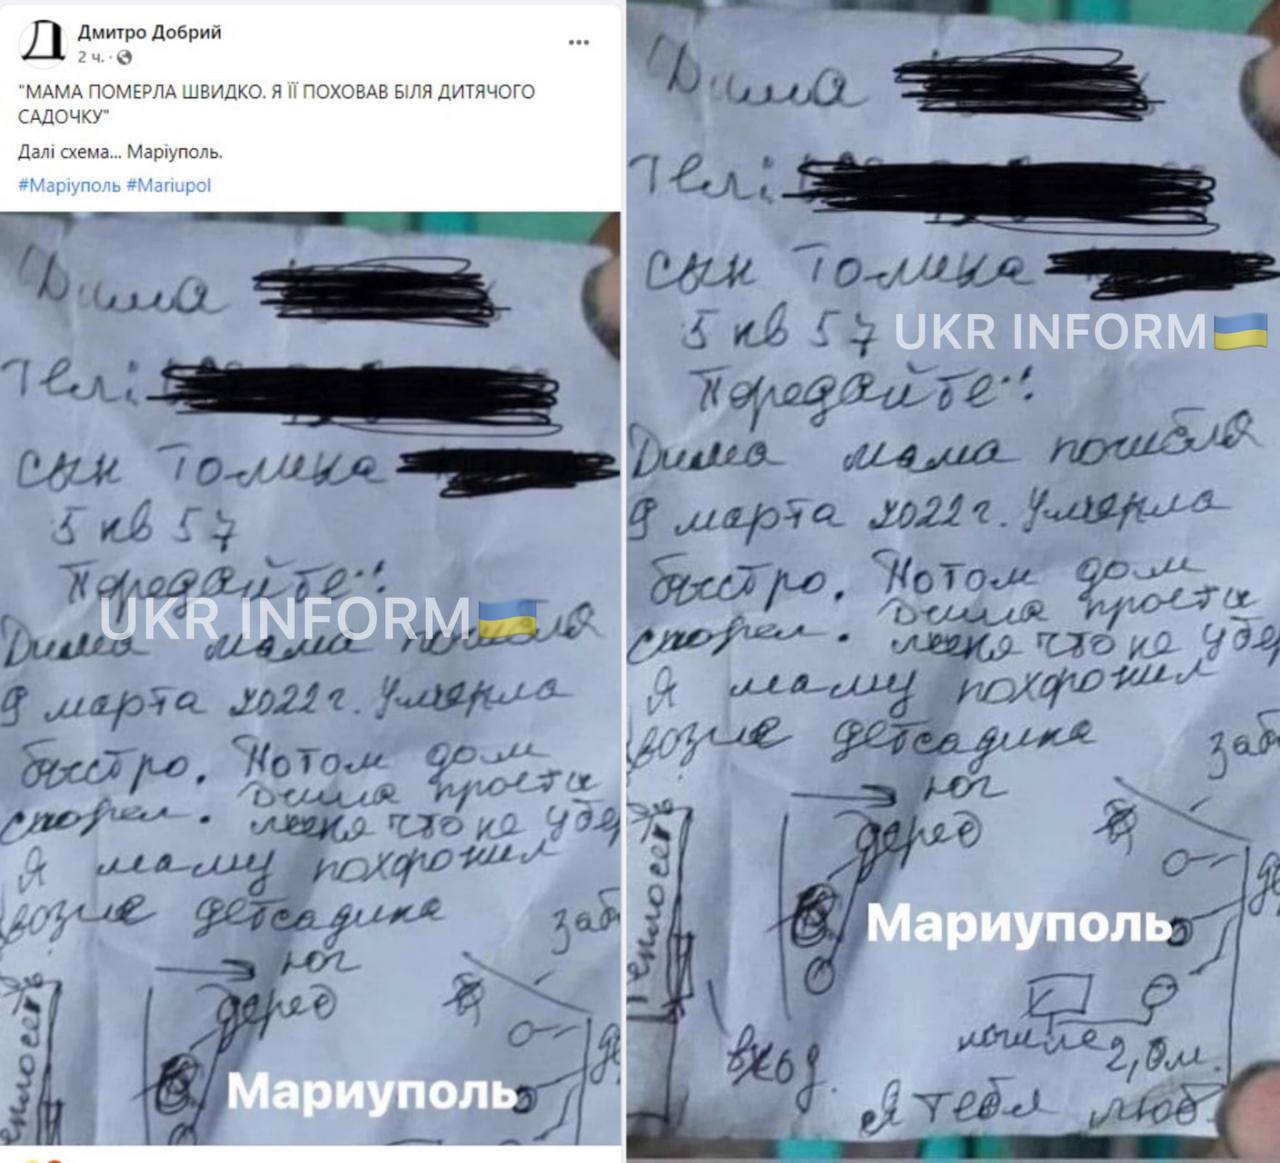 Дмитро Добрий
2 ч.
"МАМА ПОМЕРЛА ШВИДКО. Я ЇЇ ПОХОВАВ БІЛЯ ДИТЯЧОГО
САДОЧКУ"
Далі схема... Маріуполь.
#Маріуполь #Mariupol
Дима
Тел:
сын Толика
5 кв 57
Передайте!
UKR INFORM
Дима мама погибла
9 марта 2022 г. Умерла
быстро. Потом дом
сгорел. Дима прости
меня что не убер
Я маму похоронил
возле детсадика
заб
юг
дерев
Теплосеть
Мариуполь
Дима
Тел:
сын Толика
5 кв 57
UKR INFORM
Передайте!
Дима мама погибла
9 марта 2022 г. Умерла
быстро. Потом дом
сгорел. Дима прости
меня что не убер
Я маму похоронил
возле детсадика
заб
юг
дерев
Теплосеть
Мариуполь
вход.
могила
2,0м.
Я тебя люб